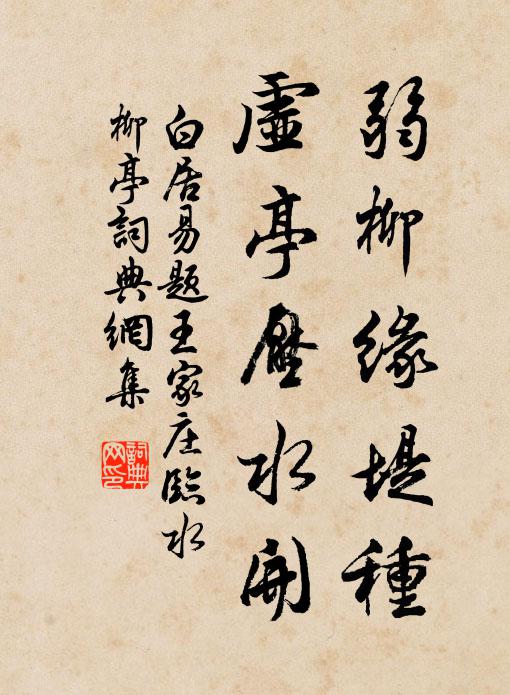 弱柳緣堤種
虛亭壓水開
白居易題王家庄臨水
柳亭詞典網集
詞典
网印